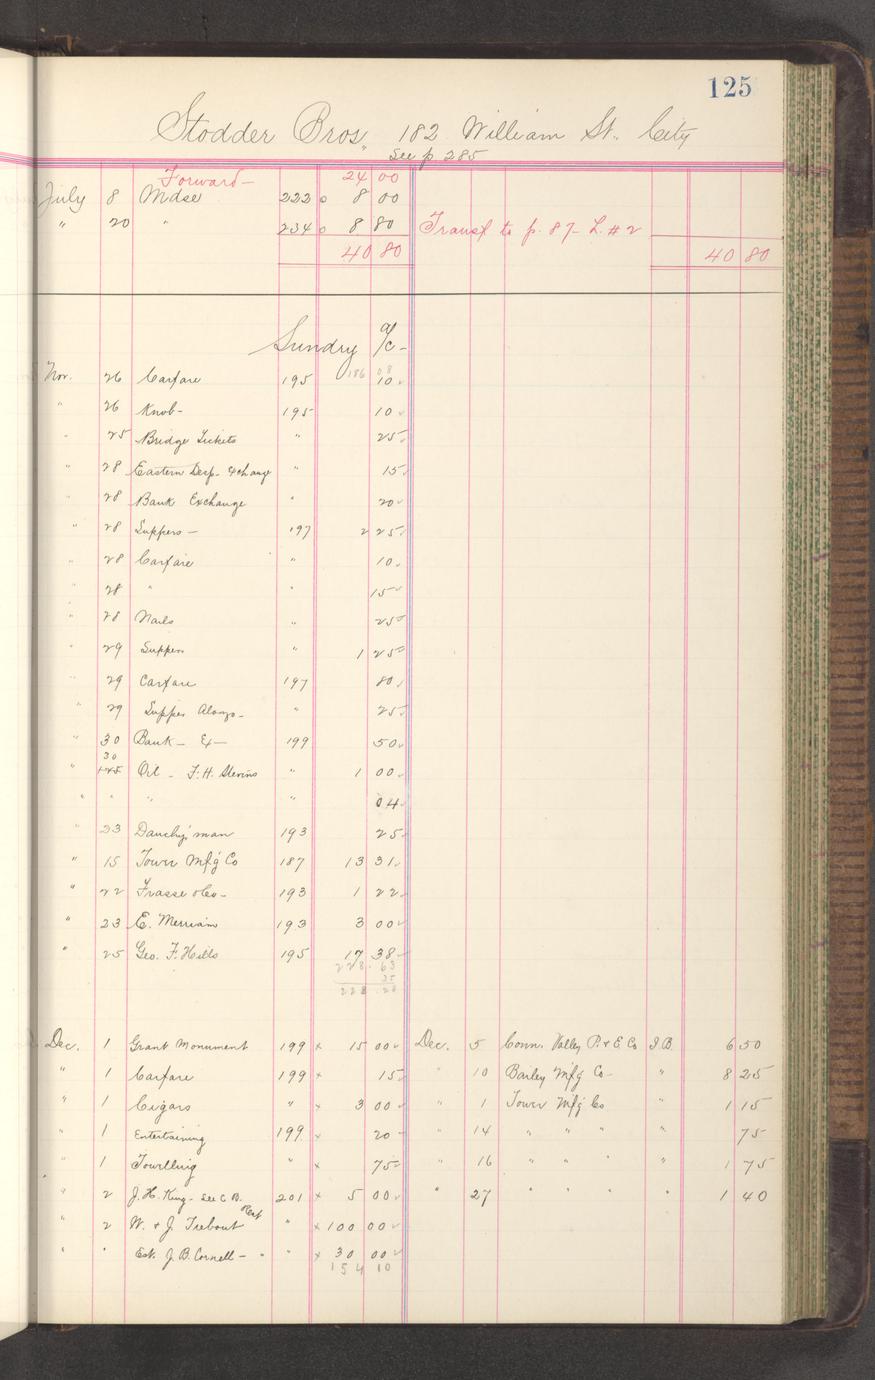 125
Stodder Bros, 182 William St. City
See p 285
Forward— 24 00
July 8 Mdse 222 0 8 00
" 20 " 234 0 8 80 Transf to p. 87- L. # 2
40 80 40 80
Sundry a/c-
186 08
Nov. 26 Carfare 195 10
" 26 Knob- 195 10
" 25 Bridge Tickets " 25
" 28 Eastern Desp. Exchange " 15
" 28 Bank Exchange " 20
" 28 Suppers — 197 2 25
" 28 Carfare " 10
" 28 " " 15
" 28 Nails " 25
" 29 Suppers " 1 25
" 29 Carfare 197 80
" 29 Supper Alonzo- " 25
" 30 Bank — Ex — 199 50
30
" Oil - F. H. Stevens " 1 00
" " " " 04
" 23 Dauchy's man 193 25
" 15 Tower Mfg Co 187 13 31
" 22 Frasse & Co- 193 1 22
" 23 E. Merriam 193 3 00
" 25 Geo. F. Hills 195 17 38
228 63
35
228 28
Dec. 1 Grant Monument 199 x 15 00 Dec. 5 Conn. Valley P. & E Co I B 6 50
" 1 Carfare 199 x 15 " 10 Barley Mfg Co- " 8 25
" 1 Cigars " x 3 00 " 1 Tower Mfg Co " 1 15
" 1 Entertaining 199 x 20 " 14 " " " " 75
" 1 Towelling " x 75 " 16 " " " " 1 75
" 2 J. H. King- See C B. 201 x 5 00 " 27 " " " " 1 40
Rent
" 2 W. & J. Trebout " x 100 00
" " Est. J. B. Cornell — " " x 30 00
154 10